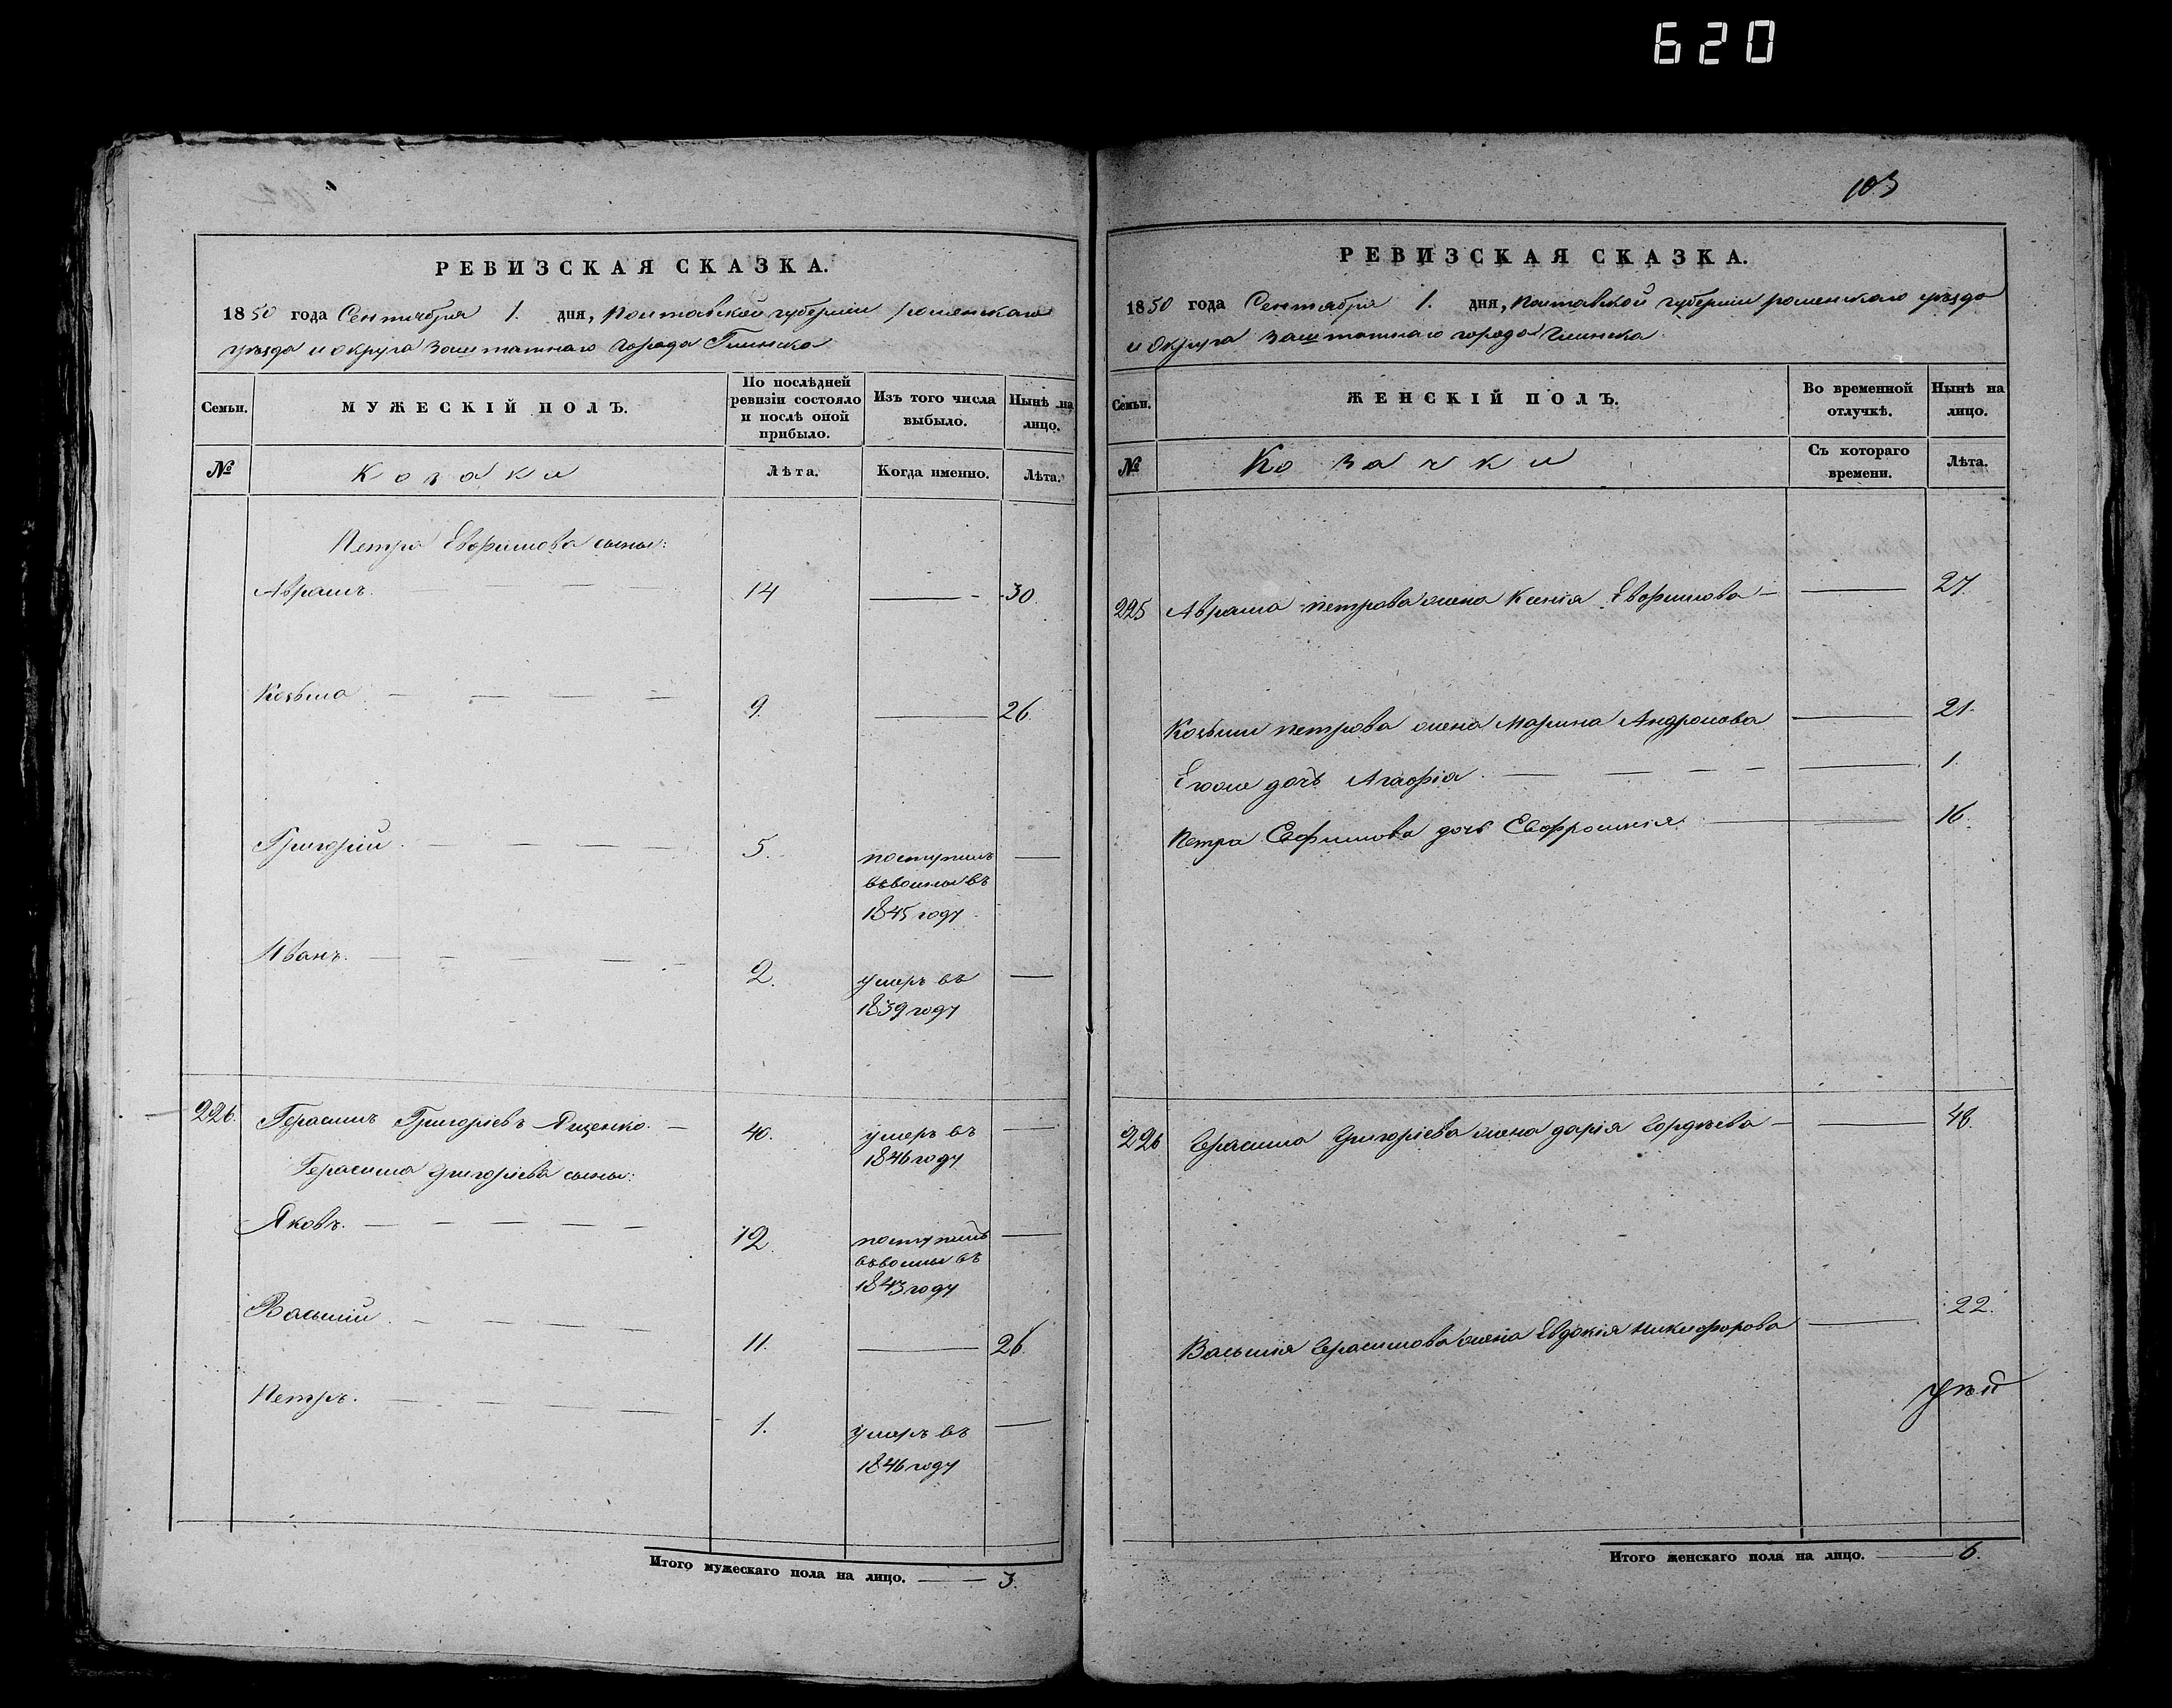 620
103
РЕВИЗСКАЯ СКАЗКА.
1850 года Сентября 1. дня, Полтавской губернии роменскаго
уѣзда и округа Заштатнаго города Глинска
Семьи.
МУЖЕСКІЙ ПОЛЪ.
По послѣдней ревизіи состояло и послѣ оной прибыло.
Изъ того числа выбыло.
Нынѣ на лицо.
№
Козаки
Лѣта.
Когда именно.
Лѣта.
Петра Евфимова сыны:
Аврамъ. 14 — 30.
Козьма 9. — 26.
Григорій 5. поступилъ —
въ
1845 году
Иванъ. 2. умеръ въ —
1839 году
226. Герасимъ Григоріевъ Яценко. 40. умеръ въ —
1846 году
Герасима Григоріева сыны:
Яковъ. 12. поступилъ —
въ
1843 году
Василій 11. — 26.
Петръ. 1. умеръ въ —
1846 году
Итого мужескаго пола на лицо. — 3.
РЕВИЗСКАЯ СКАЗКА.
1850 года Сентября 1. дня, Полтавской губерніи роменскаго уѣзда
и округа Заштатнаго города Глинска
Семьи.
ЖЕНСКІЙ ПОЛЪ.
Во временной отлучкѣ.
Нынѣ на лицо.
№
Козачки
Съ котораго времени.
Лѣта.
225 Аврама петрова жена Ксенія Евфимова — 27.
Козьми петрова жена Марина Андронова — 21.
Егоже дочь Агафія. — 1.
Петра Евфимова дочь Евфросинія — 16.
226 Герасима Григоріева жена дарія Гордѣева — 48.
Василія Герасимова жена Евдокія Никифорова — 22.
Итого женскаго пола на лицо. — 6.